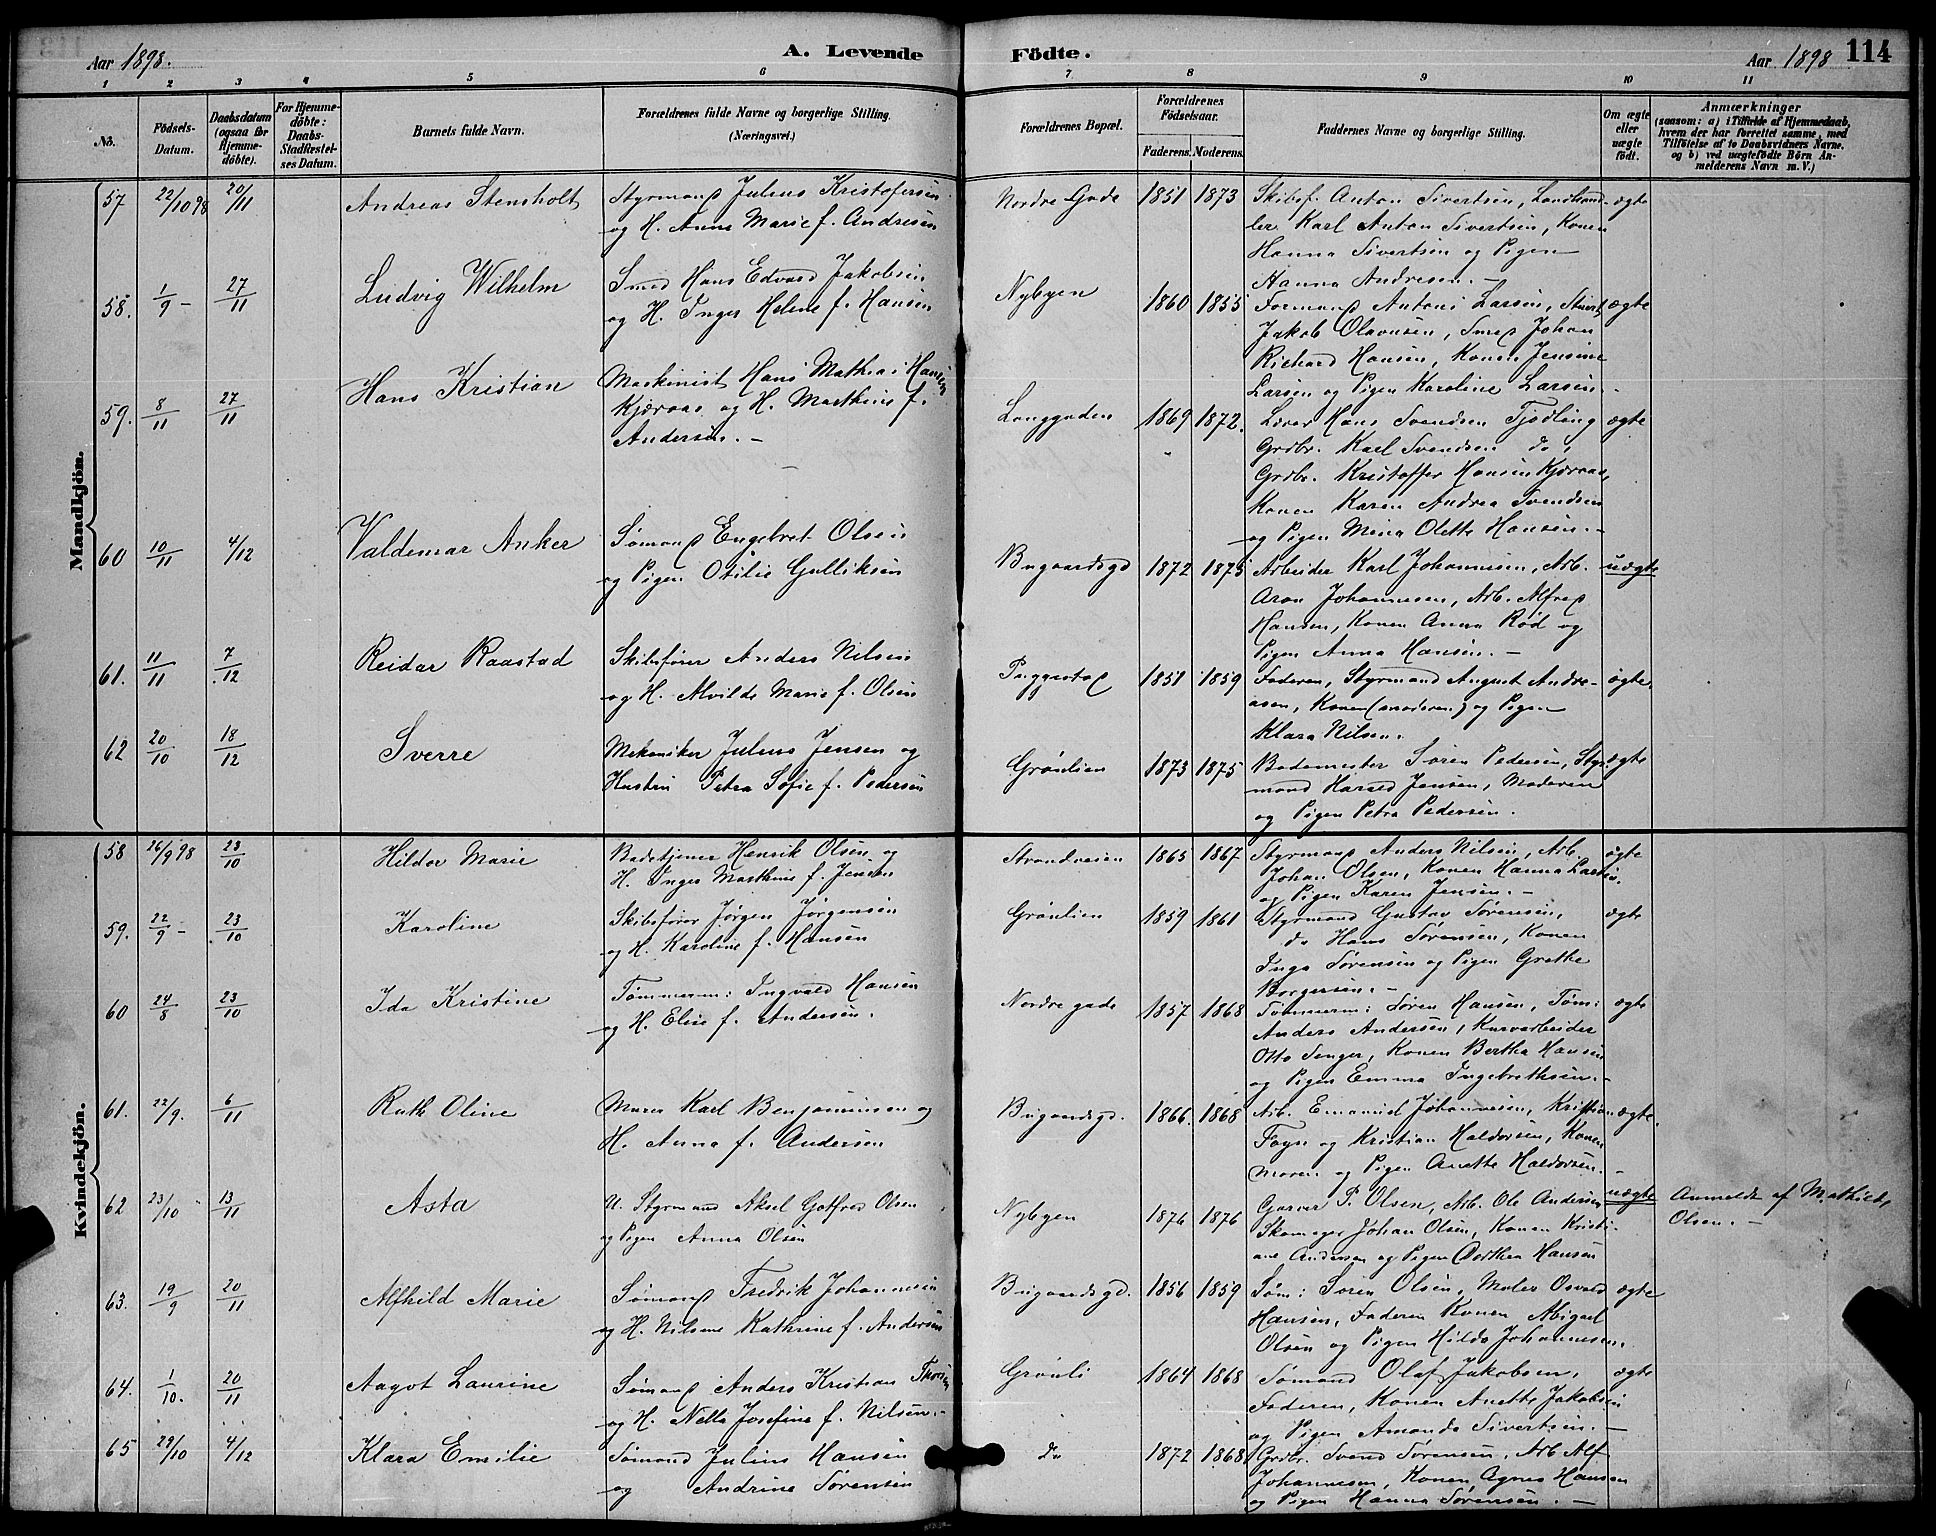 Aar 1898.
A. Levende
Födte.
Aar 1898
114
1 2 3 4 5 6 7 8 9 10 11
No.
Födsels-Datum.
Daabsdatum (ogsaa for Hjemme-döbte).
For Hjemme-döbte: Daabs-Stadfæstelses Datum.
Barnets fulde Navn.
Forældrenes fulde Navne og borgerlige Stilling.
(Næringsvei.)
Forældrenes Bopæl.
Forældrenes Födselsaar.
Faderens. Moderens.
Faddernes Navne og borgerlige Stilling.
Om ægte eller uægte födt.
Anmærkninger
(saasom: a) i Tilfælde af Hjemmedaab, hvem der har forrettet samme, med Tilföielse af to Daabsvidners Navne, og b) ved uægtefödte Börn Anmelderens Navn m. V.)
Mandkjön.
57 22/10 98 20/11 Andreas Stensholt
Styrmand Julius Kristofersen
og H. Anne Marie f. Andresen
Nordre Gade 1851 1873
Skibsf. Anton Sivertsen, Landhand-
ler Karl Anton Sivertsen, Konen
Hanna Sivertsen og Pigen
Hanna Andresen. –
ægte
58. 1/9 – 27/11 Ludvig Wilhelm
Smed Hans Edvard Jakobsen
og H. Inger Helene f. Hansen
Nybyen 1860 1855
Formand Antoni Larsen, Stuert
Jakob Olavusen, Smed Johan
Richard Hansen, Konen Jensine
Larsen og Pigen Karoline Larsen. –
ægte
59. 8/11 27/11 Hans Kristian
Maskinist Hans Mathias Hansen
Kjæraas og H. Marthine f.
Andersen. –
Langgaden 1869 1872.
Lærer Hans Svendsen Tjodling
Grdbr. Karl Svendsen do,
Grdbr. Kristoffer Hansen Kjæraas,
Konen Karen Andrea Svendsen
og Pigen Mina Olette Hansen. –
ægte
60 10/11 4/12 Valdemar Anker
Sømand Engebret Olsen
og Pigen Otilie Gulliksen
Bugaardsgd 1872 1875
Arbeider Karl Johannesen, Arb.
Aron Johannesen, Arb. Alfred
Hansen, Konen Anna Rød og
Pigen Anna Hansen. –
uægte
61. 11/11 7/12 Reidar Raastad
Skibsfører Anders Nilsen
og H. Alvilde Marie f. Olsen
1851 1859
Faderen, Styrmand August Andre-
asen, Konen (moderen) og Pigen
Klara Nilsen.
ægte.
62 20/10 18/12 Sverre
Mekaniker Julius Jensen og
Hustru Petra Sofie f. Pedersen
Grønlien 1873 1875
Bademester Søren Pedersen, Styr-
mand Harald Jensen, Moderen
og Pigen Petra Pedersen.
ægte
Kvindekjön.
58 26/9 98 23/10 Hildar Marie
Badetjener Henrik Olsen og
H. Inger Marthine f. Jensen
Strandveien 1865 1867
Styrmand Anders Nilsen, Arb.
Johan Olsen, Konen Hanna Larsen.
og Pigen Karen Jensen. –
ægte
59. 22/9 – 23/10 Karoline
Skibsfører Jørgen Jørgensen
og H. Karoline f. Hansen
Grønlien 1859 1861
Styrmand Gustav Sørensen,
do Hans Sørensen, Konen
Inga Sørensen og Pigen Grethe
Borgersen. –
ægte
60 24/8 23/10 Ida Kristine
Tømmerm: Ingvald Hansen
og H. Elise f. Andersen.
Nordre gade 1857 1868
Tømmerm: Søren Hansen, Tøm:
Anders Andersen, Kurvarbeider
Otto Senger, Konen Bertha Hansen
og Pigen Emma Ingebrethsen. –
ægte
61. 22/9. 6/11 Ruth Oline
Murer Karl Benjaminsen og
H. Anna f. Andersen
Bugaardsgd. 1866. 1868
Arb. Emanuel Johannesen, Kristian
Foyn og Kristian Haldorsen, Konen
Maren og Pigen Anette Haldorsen. –
ægte.
62 23/10 13/11 Asta
U. Styrmand Aksel Gotfred Olsen
og Pigen Anna Olsen
Nybyen 1876 1876
Garver P. Olsen, Arb. Ole Andersen
Skomager Johan Olsen, Konen Kristi-
ane Andersen og Pigen Dorthea Hansen
uægte
Anmeldt af Mathilde
Olsen. –
63. 19/9 20/11 Alfhild Marie
Sømand Fredrik Johannesen
og H. Nilsine Kathrine f. Andersen
Bugaardsgd. 1856 1859
Søm: Søren Olsen, Maler Osvald
Hansen, Faderen Konen Abigael
Olsen og Pigen Hilda Johannesen.
ægte
64. 1/10. 20/11 Aagot Laurine
Sømand Anders Kristian Thorsen
og H. Nella Josefine f. Nilsen. –
Grønli 1864 1868
Sømand Olaf Jakobsen,
Faderen, Konen Anette Jakobsen
og Pigen Amanda Sivertsen. –
ægte
65 29/10 4/12 Klara Emilie
Sømand Julius Hansen
og Andrine Sørensen
do 1872 1868
Grdbr. Svend Sørensen, Arb Alf
Johannesen, Konen Agnes Hansen
og Pigen Hanna Sørensen. –